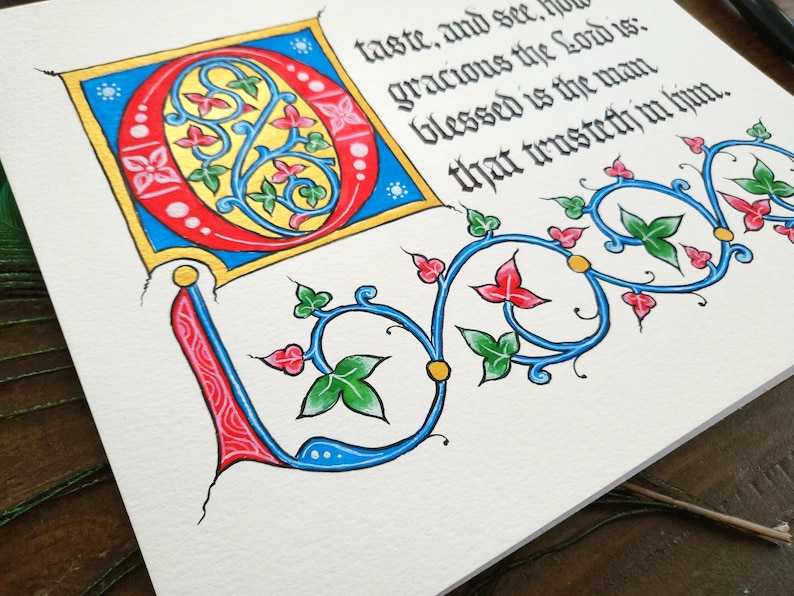 O taste, and see, how
gracious the Lord is:
blessed is the man
that trusteth in him.